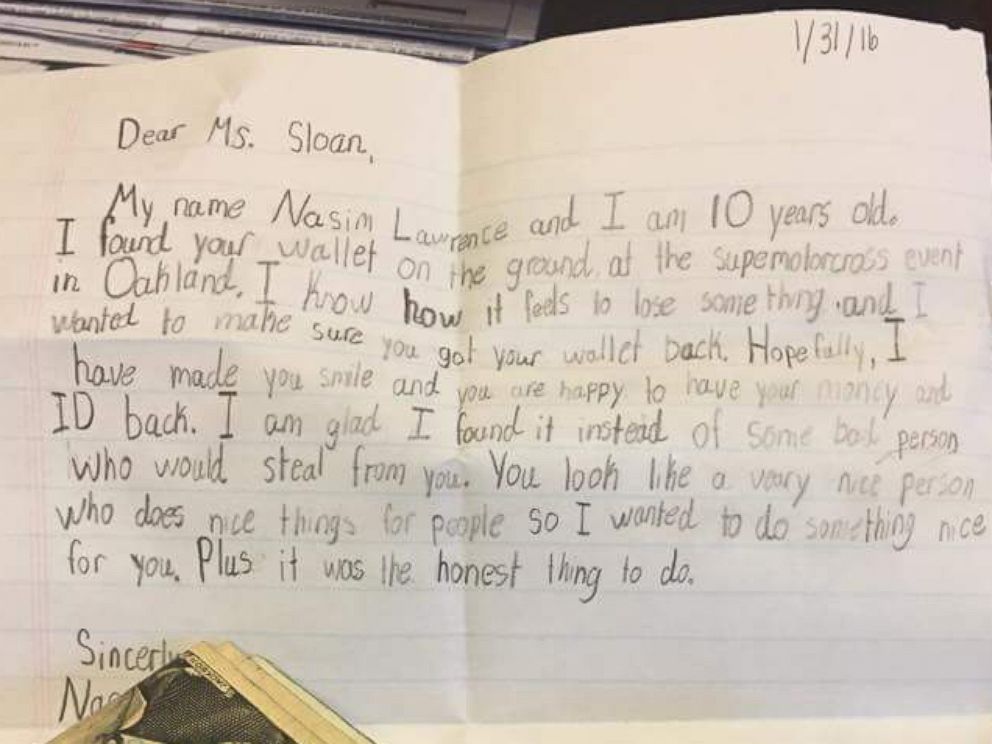 1/31/16
Dear Ms. Sloan,
My name Nasim Lawrence and I am 10 years old.
I found your wallet on the ground at the supemotorcross event
in Oakland. I know how it feels to lose something and I
wanted to make sure you got your wallet back. Hopefully, I
have made you smile and you are happy to have your money and
ID back. I am glad I found it instead of some bad person
who would steal from you. You look like a veary nice person
who does nice things for people so I wanted to do something nice
for you. Plus it was the honest thing to do.
Sincerly